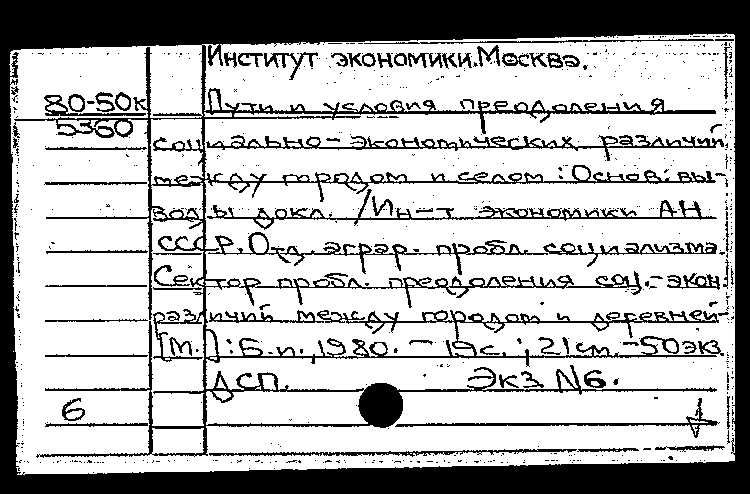 Институт экономики. Москва.
80-50к Пути и условия преодоления
5360
социально-экономических различий
между городом и селом : Основ. вы-
воды докл. / Ин-т экономики АН
СССР. Отд. аграр. пробл. социализма.
Сектор пробл. преодоления соц.-экон.
различий между городом и деревней-
[М.] : Б.и., 1980. - 19с. ; 21см. - 50экз.
ДСП. Экз. №6.
6